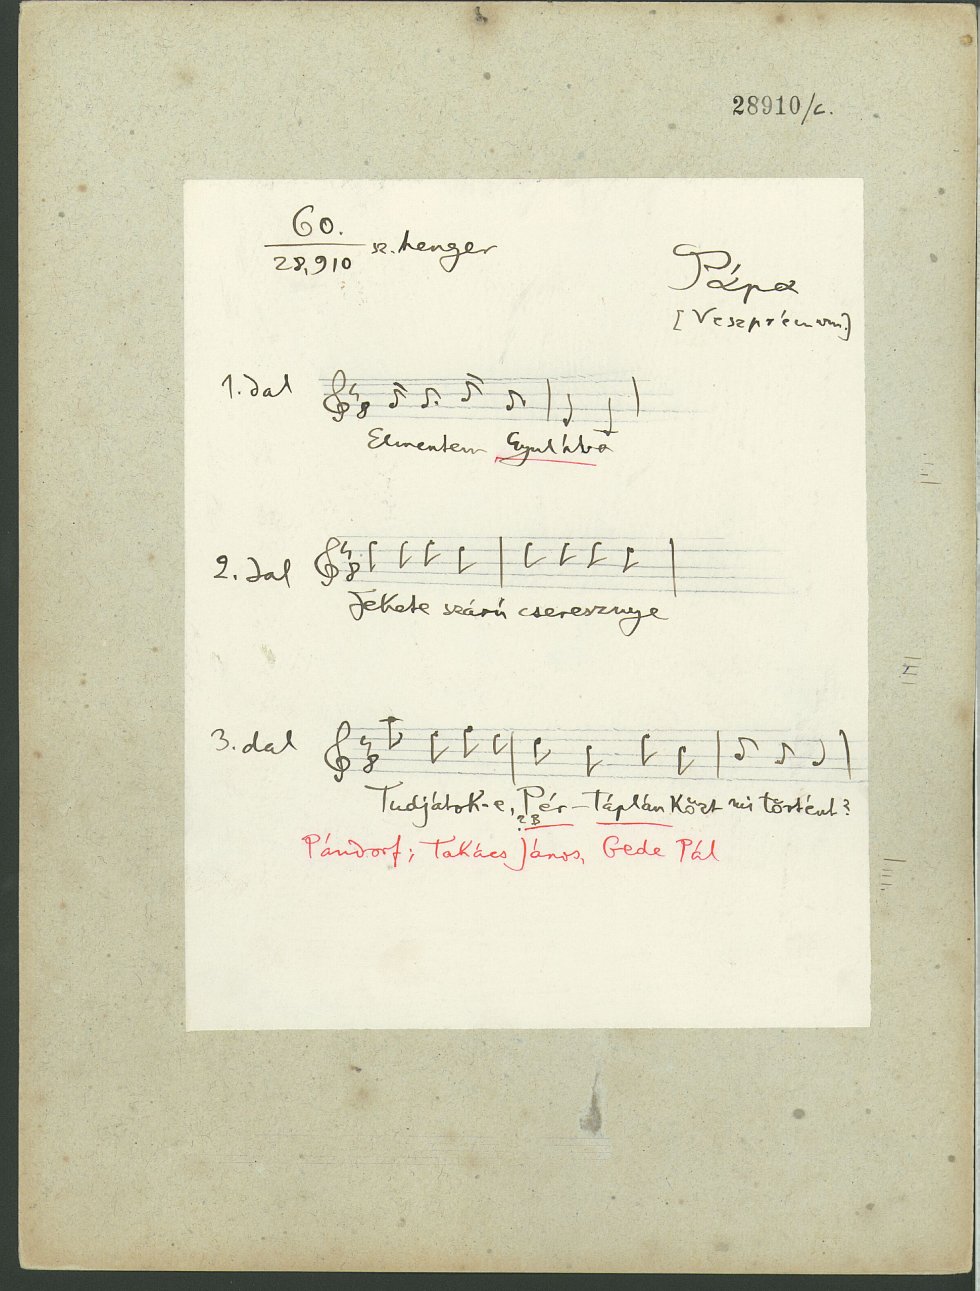 28910/c.
60.
28,910 sz. henger
Pápa
[Veszprém vm.]
1. dal
Elmentem Gyulába
2. dal
Fekete szárú cseresznye
3. dal
Tudjátok-e, Pér-Táplán közt mi történt?
Pándorf; Takács János, Gede Pál